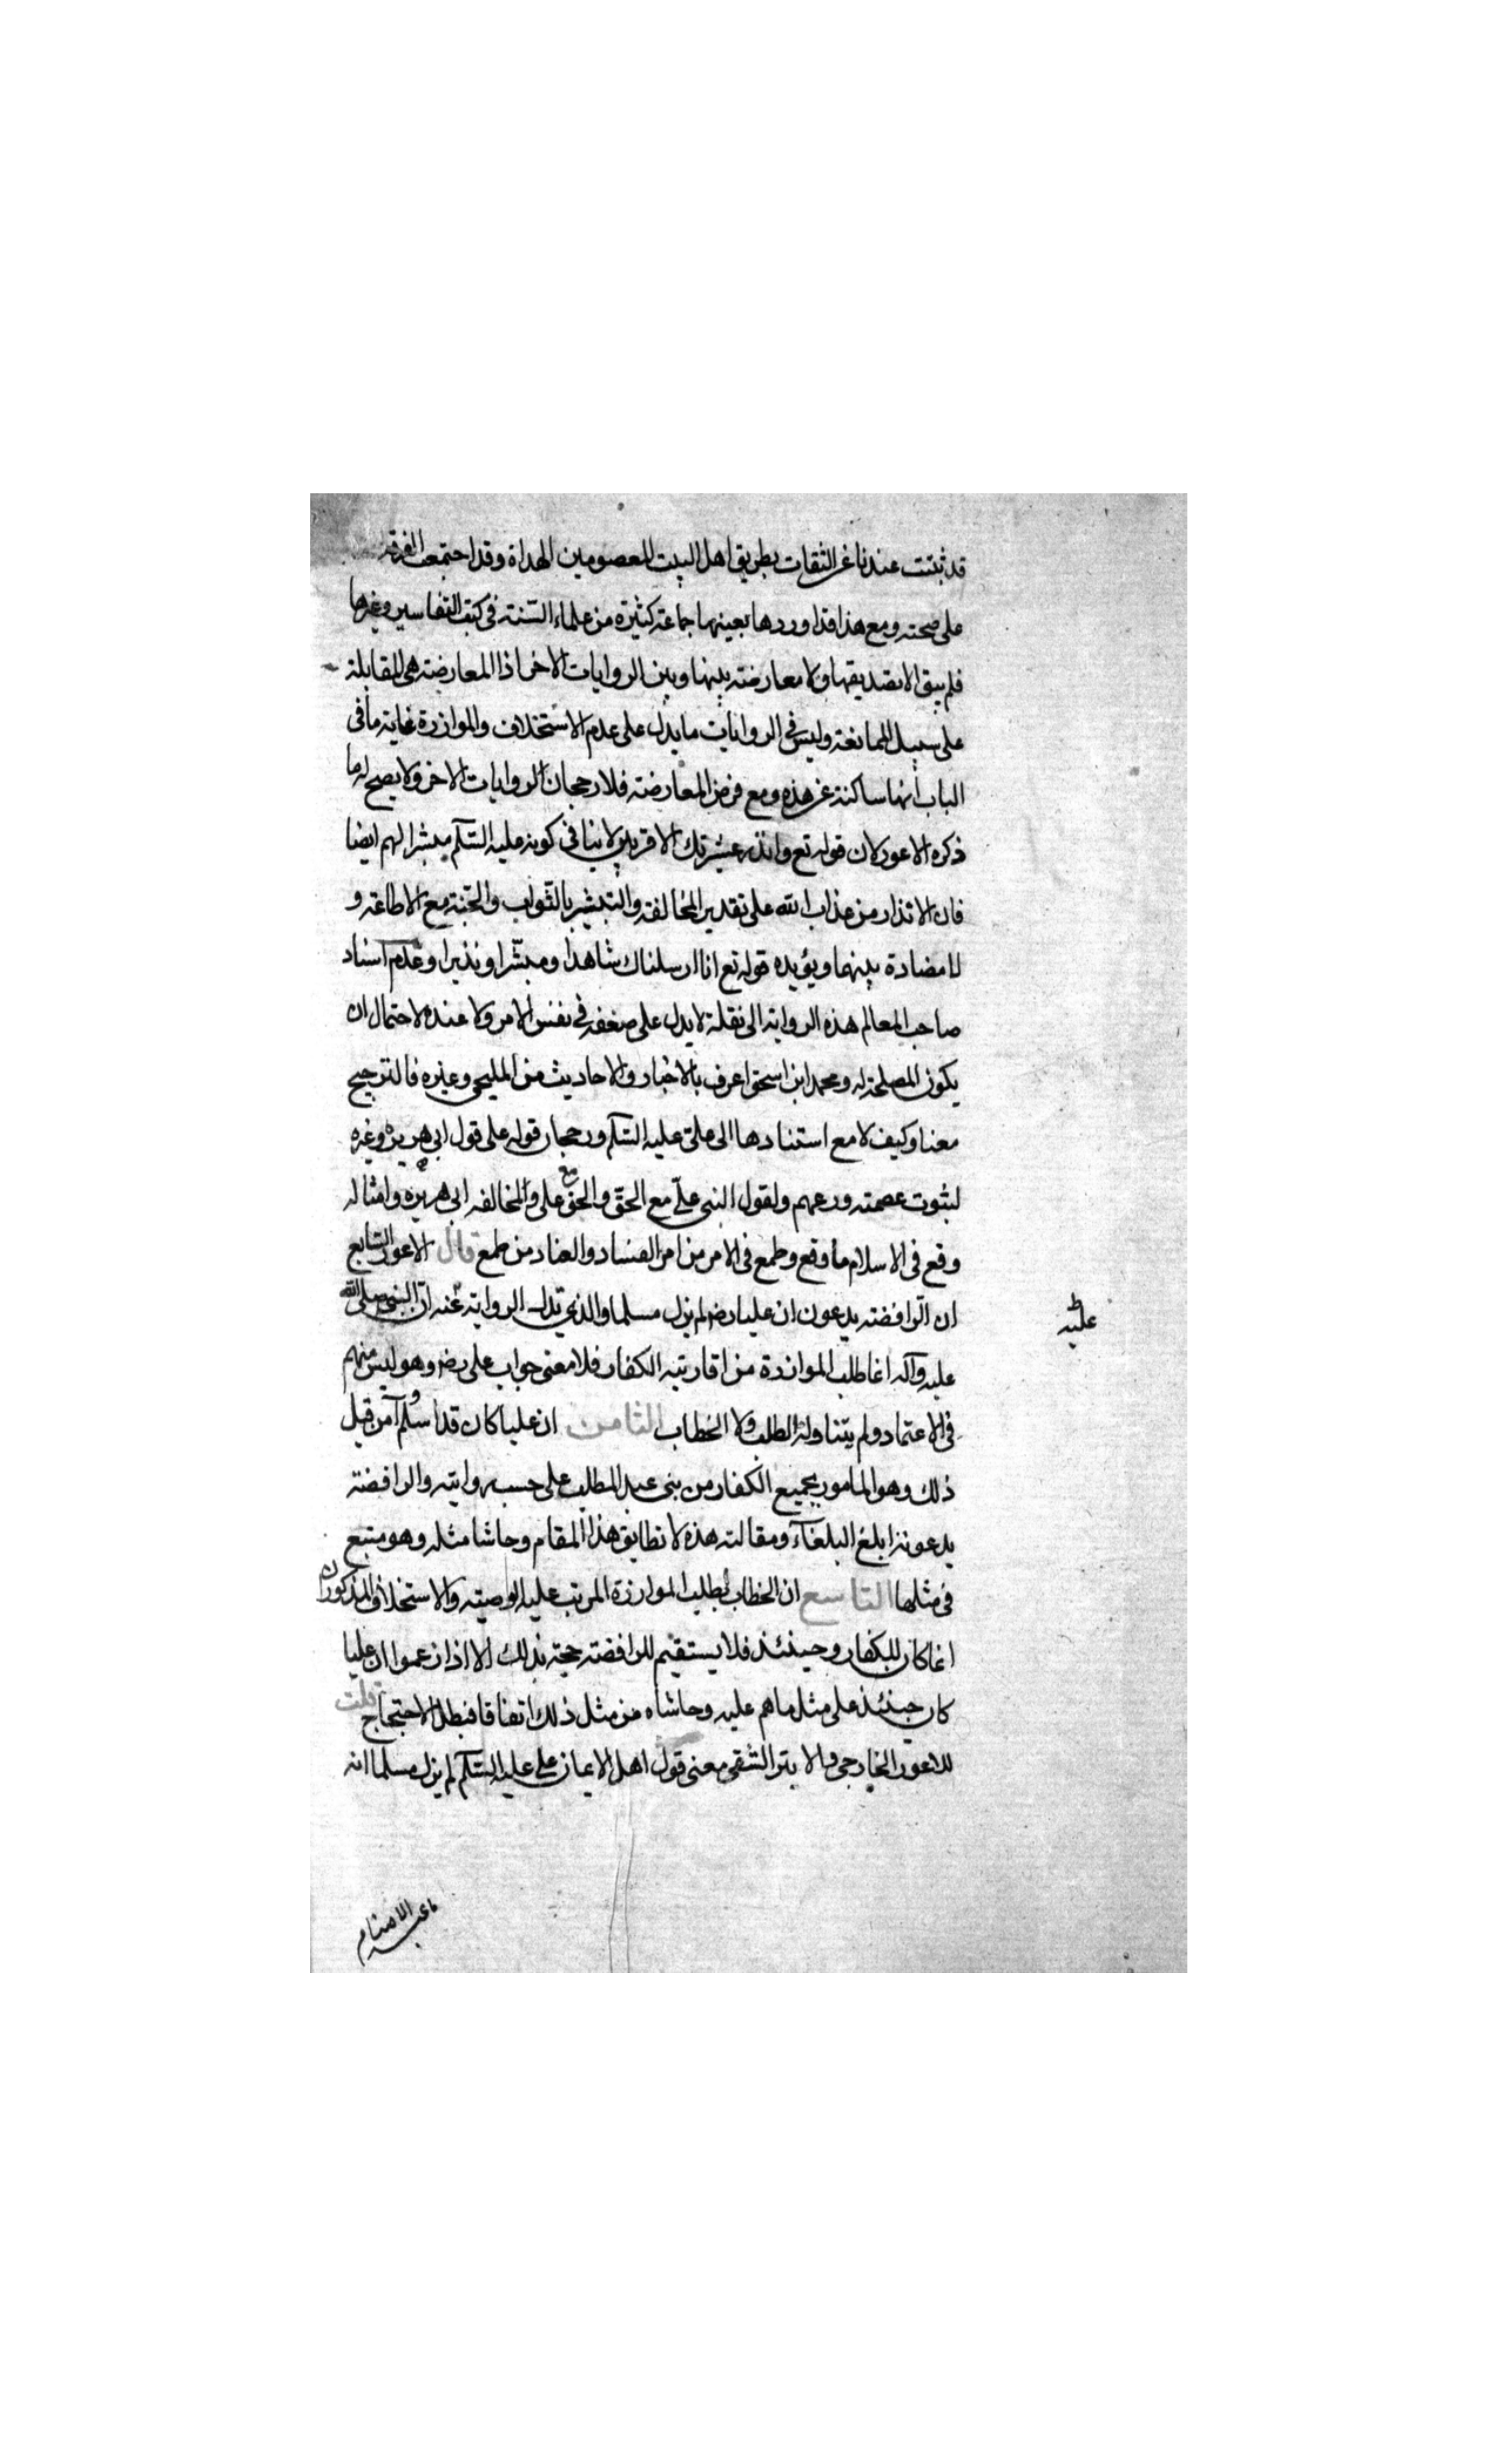 قد ثبتت عندنا عن الثقات بطريق اهل البيت المعصومين الهداة وقد اجتمعت الفرقه
على صحته ومع هذا قد اوردها بعينها جماعة كثيرة من علماء السنة فى كتب التفاسير وغيرها
فلم يبق الا تصديقها ولا معارضة بينها وبين الروايات الاخر اذ المعارضة هى المقابلة
على سبيل الممانعة وليس فى الروايات ما يدل على عدم الاستخلاف والموازرة غاية ما فى
الباب انها ساكتة عن هذه ومع فرض المعارضة فلا رجحان الروايات الاخر ولا يصح له ما
ذكره الاعور لان قوله تع وانذر عشيرتك الاقربين لا ينافى كونه عليه السلم مبشرا لهم ايضا
فان الانذار من عذاب الله على تقدير المخالفة والتبشير بالثواب والجنة مع الاطاعة و
لا مضادة بينهما ويؤيده قوله تع انا ارسلناك شاهدا ومبشرا ونذيرا وعدم اسناد
صاحب المعالم هذه الرواية الى نقلة لا يدل على ضعفه فى نفس الامر ولا عنده لاحتمال ان
يكون المصلحة له ومحمد ابن اسحق اعرف بالاخبار والاحاديث من المليحى وغيره فالترجيح
معنا وكيف لا مع استنادها الى على عليه السلم ورجحان قوله على قول ابى هريرة وغيره
لثبوت عصمته ورعهم ولقول النبى على مع الحق والحق مع على والمخالفه ابى هريره وامثاله
وقع فى الاسلام ما وقع وطمع فى الامر من امر الفساد والعناد من طمع قال الاعور السابع
ان الرافضة يدعون ان عليا رض لم يزل مسلما والذى تدل الرواية عنه ان النبى صلى الله
عليه
عليه وآله انما طلب الموازرة من اقاربه الكفار فلا معنى جواب على رض وهو ليس منهم
فى الاعتماد ولم يتناوله الطلب ولا الخطاب الثامن ان عليا كان قد اسلم وآمن قبل
ذلك وهو المامور بجميع الكفار من بنى عبد المطلب على حسب روايته والرافضة
يدعونه ابلغ البلغاء ومقالته هذه لا تطابق هذا المقام وحاشا مثله وهو متبع
فى مثلها التاسع ان الخطاب بطلب الموازرة المرتب عليه الوصية والاستخلاف المذكوران
انما كان للكفار وحينئذ فلا يستقيم للرافضة حجة بذلك الا اذا زعموا ان عليا
كان حينئذ على مثل ما هم عليه وحاشاه من مثل ذلك اتفاقا فبطل الاحتجاج قلت
للاعور الخارجى والابتر الشقى معنى قول اهل الايمان على عليه السلم لم يزل مسلما انه
ما عبد الاصنام